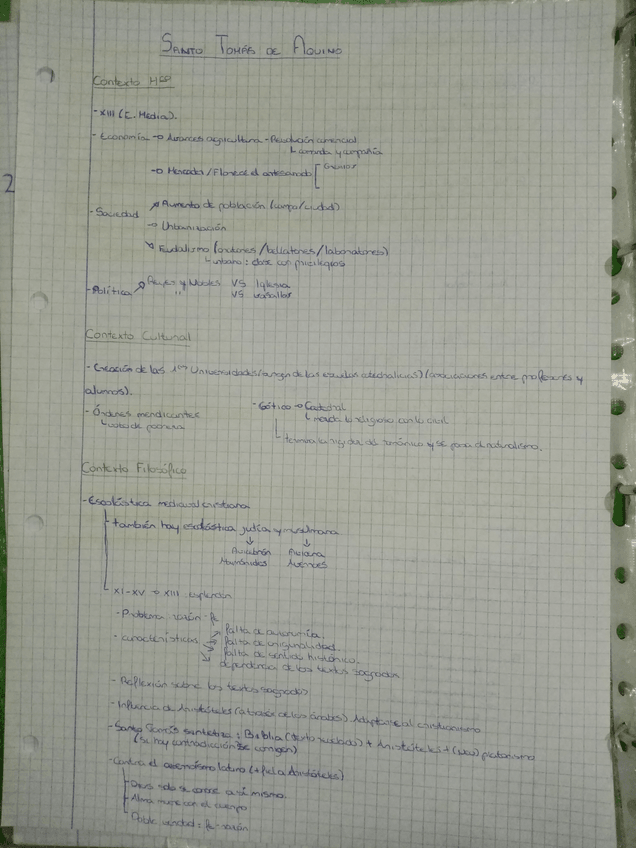 SANTO TOMÁS DE AQUINO
Contexto Hco
- XIII (E. Media).
- Economía → Avances agricultura - Revolución comercial
↳ comenda y compañía
→ Mercados / Florece el artesanado [ Gremios
- Sociedad ↗ Aumento de población (campo/ciudad)
→ Urbanización
↘ Feudalismo (oratores/bellatores/laboratores)
↳ urbano: clase con privilegios
- Política ↗ Reyes y Nobles VS Iglesia
" VS vasallos
Contexto Cultural
- Creación de las 1as Universidades (origen de las escuelas catedralicias) (asociaciones entre profesores y
alumnos).
- Órdenes mendicantes
↳ voto de pobreza
- Gótico → Catedral
↳ mezcla lo religioso con lo civil
↳ termina la rigidez del románico y se pasa al naturalismo.
Contexto Filosófico
- Escolástica medieval cristiana
- también hay escolástica judía y musulmana
↓ ↓
Avicebrón Avicena
Maimónides Averroes
XI - XV → XIII esplendor
- Problema razón-fe
- características ↗ falta de autonomía.
→ falta de originalidad.
→ falta de sentido histórico.
↘ dependencia de los textos sagrados
- Reflexión sobre los textos sagrados
- Influencia de Aristóteles (a través de los árabes) Adaptarle al cristianismo
- Santo Tomás sintetiza: Biblia (texto revelado) + Aristóteles + (neo) platonismo
(si hay contradicción se corrigen)
- Contra el averroísmo latino (+ fiel a Aristóteles)
- Dios solo se conoce a sí mismo.
- Alma muere con el cuerpo
- Doble verdad: fe - razón
2